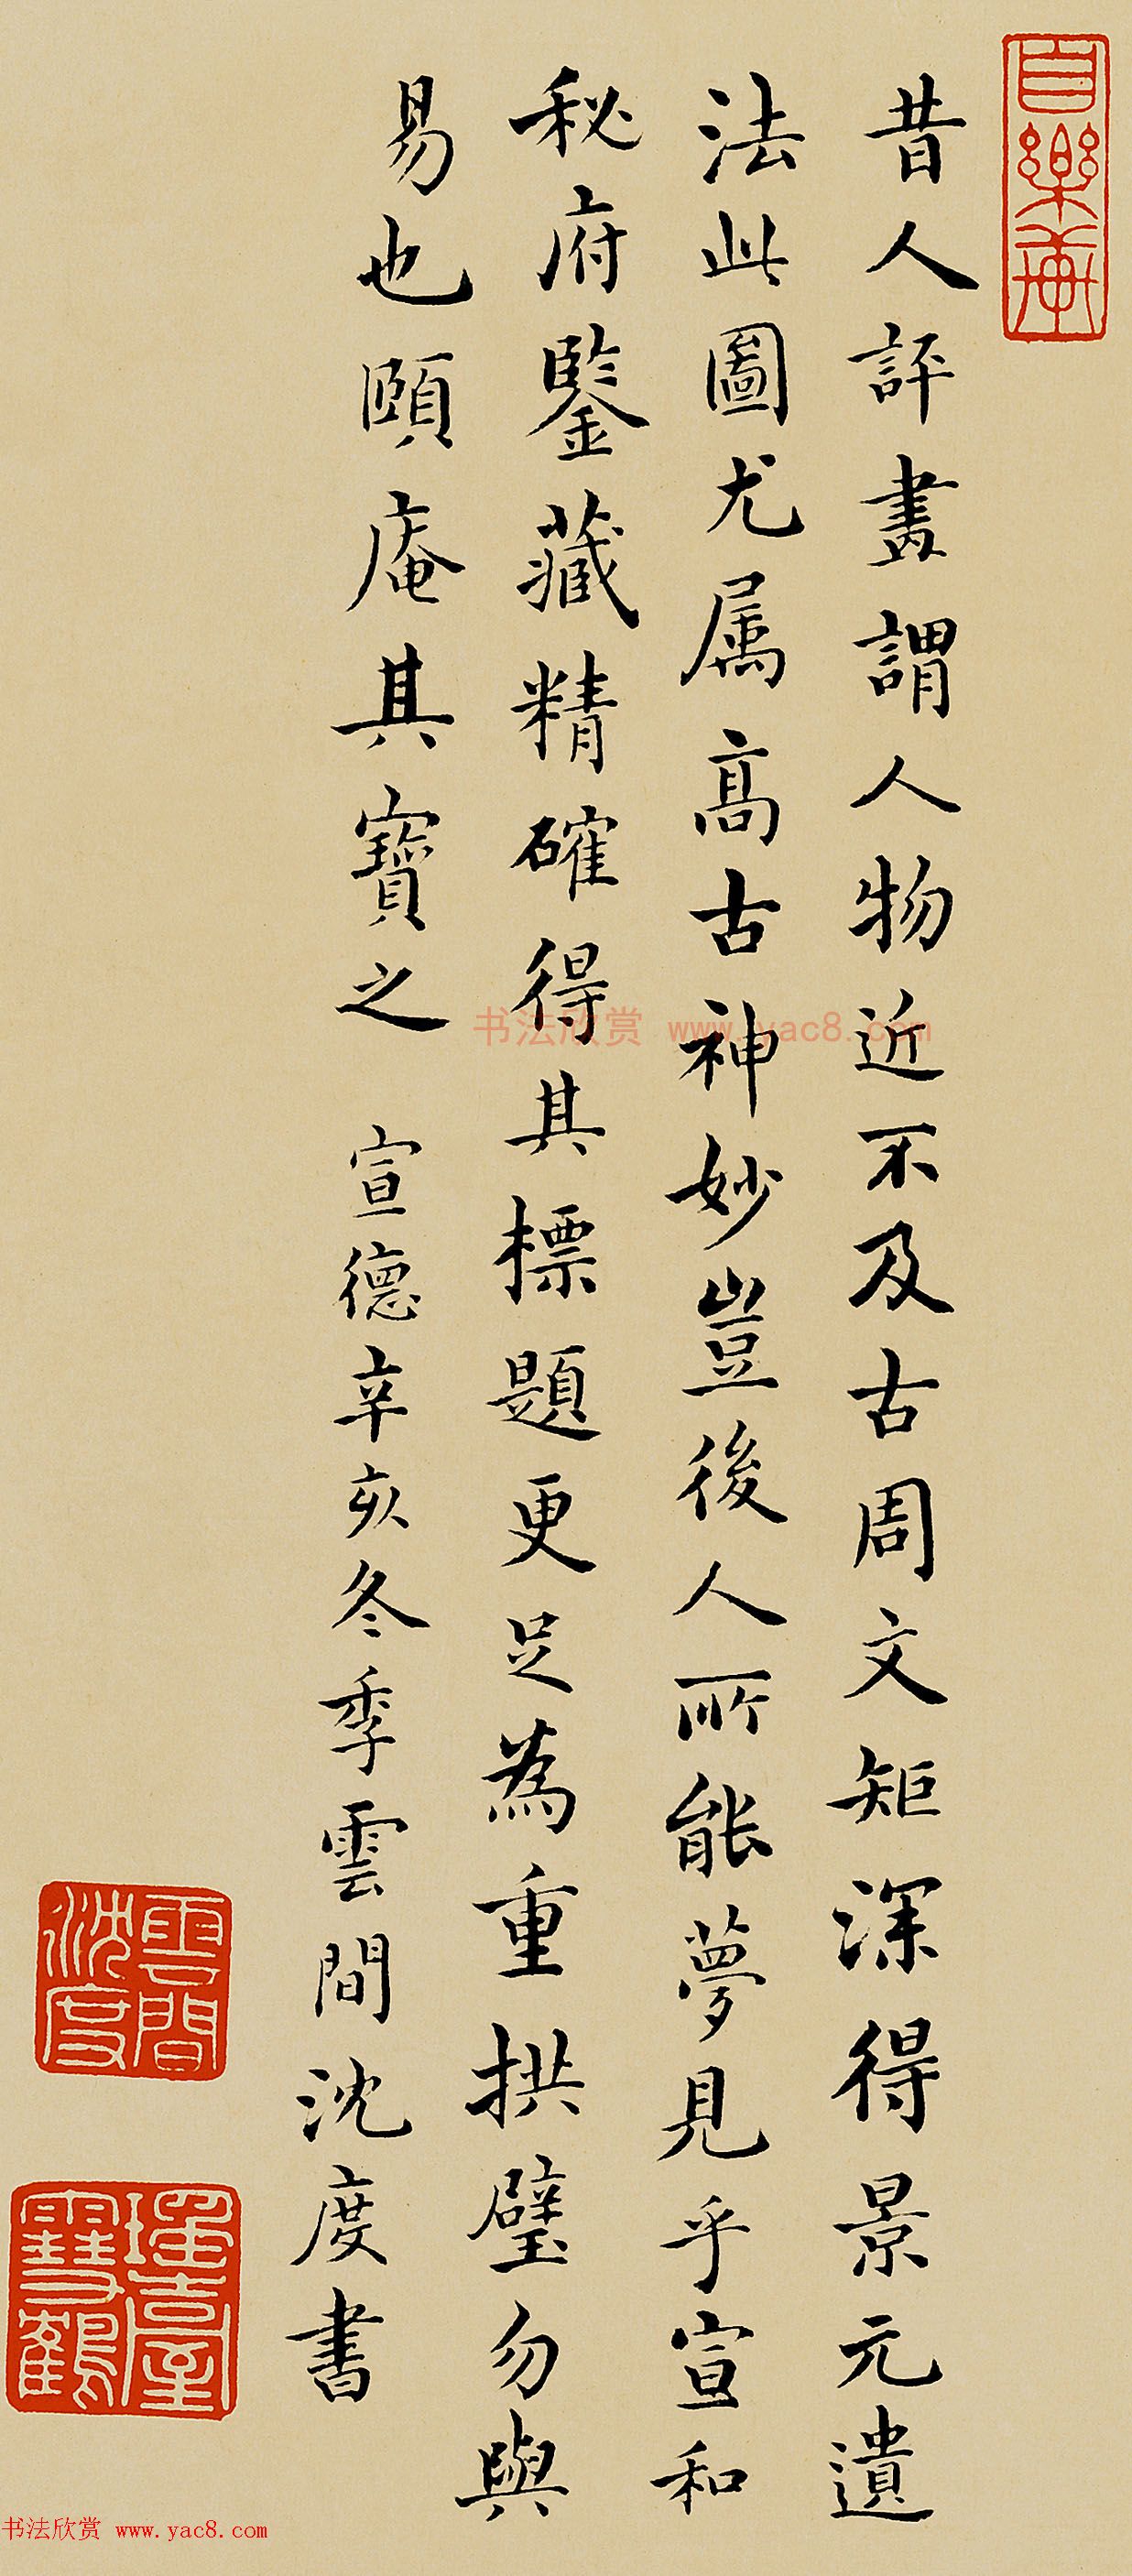 自樂菴
昔人評畫謂人物近不及古周文矩深得景元遺
法此圖尤属髙古神妙豈後人所能夢見乎宣和
秘府鑒藏精確得其標題更足為重拱璧勿與
易也頤庵其寶之 宣德辛亥冬季雲間沈度書
雲間沈度
書法欣赏 www.yac8.com
书法欣赏 www.yac8.com